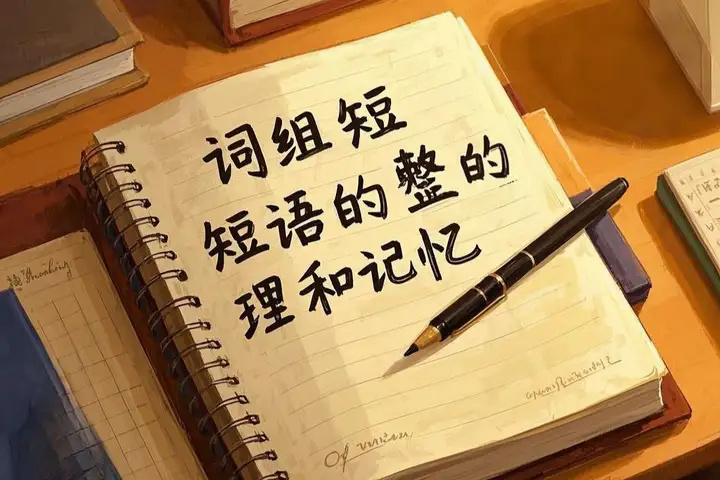 词组短
短语的整的
理和记忆